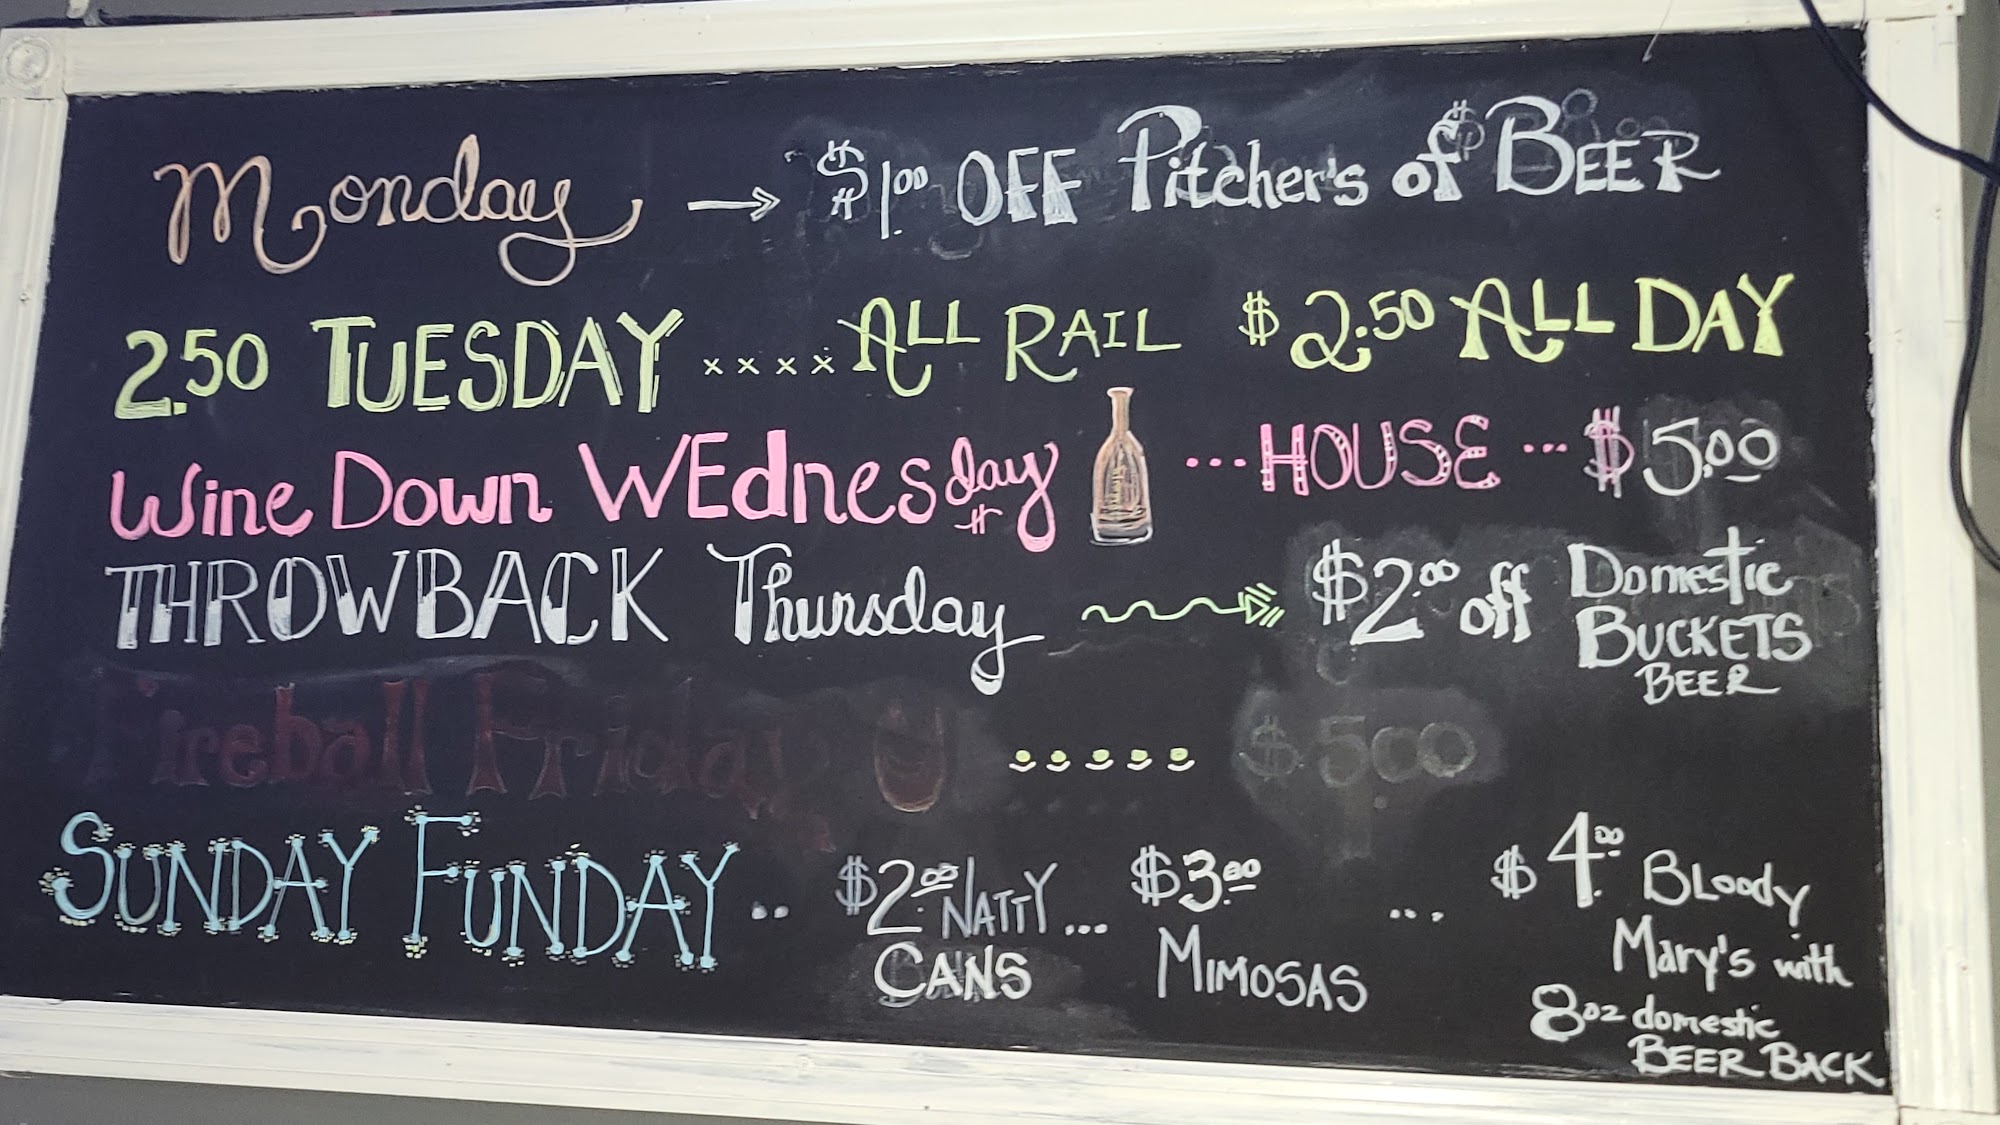 Monday → $1.00 OFF Pitcher's of BEER
2.50 TUESDAY xxxx ALL RAIL $2.50 ALL DAY
Wine Down WEdnesday ... HOUSE ... $5.00
THROWBACK Thursday $2.00 off Domestic
BUCKETS
BEER
Fireball Friday ..... $500
SUNDAY FUNDAY .. $2.00 NATTY ... $3.00 ... $4.00 BLoody
CANS MIMOSAS Mary's with
8oz domestic
BEER BACK